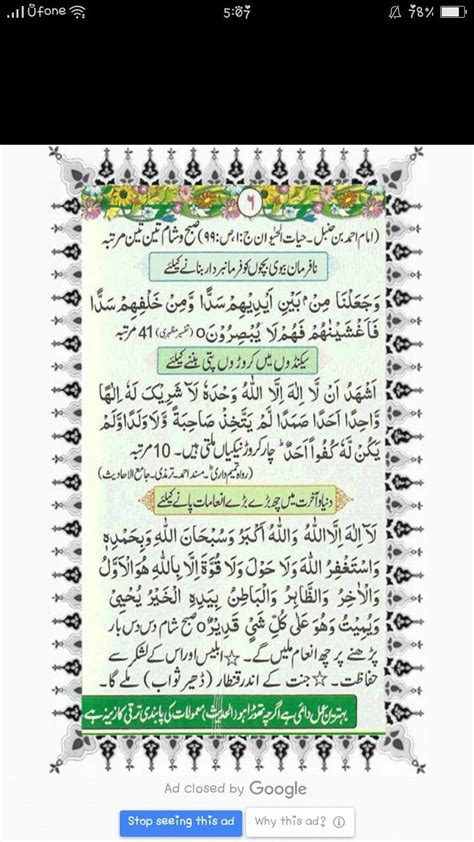 Ufone 5:07 78%
۶
(امام احمد بن حنبل۔ حیات الحیوان ج:۱، ص:۹۹) صبح و شام تین تین مرتبہ
نافرمان بیوی بچوں کو فرمانبردار بنانے کیلئے
وَجَعَلْنَا مِنْۢ بَيْنِ اَيْدِيْهِمْ سَدًّا وَّمِنْ خَلْفِهِمْ سَدًّا
فَاَغْشَيْنٰهُمْ فَهُمْ لَا يُبْصِرُوْنَ۝ (تفسیر مظہری) 41 مرتبہ
سیکنڈوں میں کروڑوں پتی بننے کیلئے
اَشْهَدُ اَنْ لَّا اِلٰهَ اِلَّا اللّٰهُ وَحْدَهٗ لَا شَرِيْكَ لَهٗ اِلٰهًا
وَّاحِدًا اَحَدًا صَمَدًا لَّمْ يَتَّخِذْ صَاحِبَةً وَّلَا وَلَدًا وَّلَمْ
يَكُنْ لَّهٗ كُفُوًا اَحَدٌ چار کروڑ نیکیاں ملتی ہیں۔ 10 مرتبہ
(رواہ تمیم داریؓ۔ مسند احمد۔ ترمذی۔ جامع الاحادیث)
دنیا و آخرت میں چھ بڑے بڑے انعامات پانے کیلئے
لَآ اِلٰهَ اِلَّا اللّٰهُ وَاللّٰهُ اَكْبَرُ وَسُبْحَانَ اللّٰهِ وَبِحَمْدِهٖ
وَاسْتَغْفِرُ اللّٰهَ وَلَا حَوْلَ وَلَا قُوَّةَ اِلَّا بِاللّٰهِ هُوَ الْاَوَّلُ
وَالْاٰخِرُ وَالظَّاهِرُ وَالْبَاطِنُ بِيَدِهِ الْخَيْرُ يُحْيِيْ
وَيُمِيْتُ وَهُوَ عَلٰى كُلِّ شَيْءٍ قَدِيْرٌ۝ صبح شام دس دس بار
پڑھنے پر چھ انعام ملیں گے۔ ☆ ابلیس اور اس کے لشکر سے
حفاظت۔ ☆ جنت کے اندر قنطار (ڈھیر ثواب) ملے گا۔
بہترین عمل دائمی ہے اگرچہ تھوڑا ہو (الحدیث) معمولات کی پابندی ترقی کا زینہ ہے
Ad closed by Google
Stop seeing this ad Why this ad?